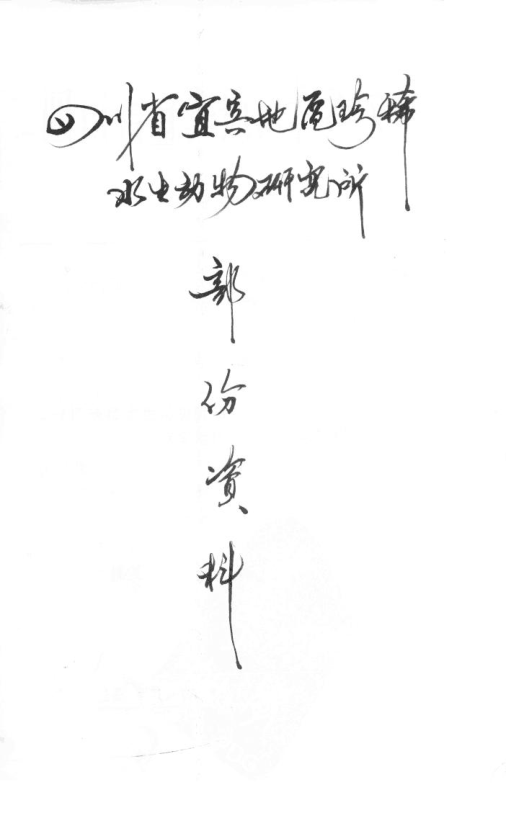 四川省宜宾地区珍稀
水生动物研究所
部
份
资
料